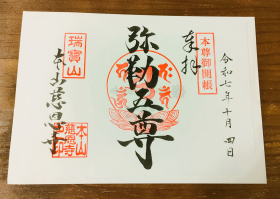 令和七年十月四日
本尊御開帳
奉拝
弥勒五尊
瑞寶山
本山慈恩寺